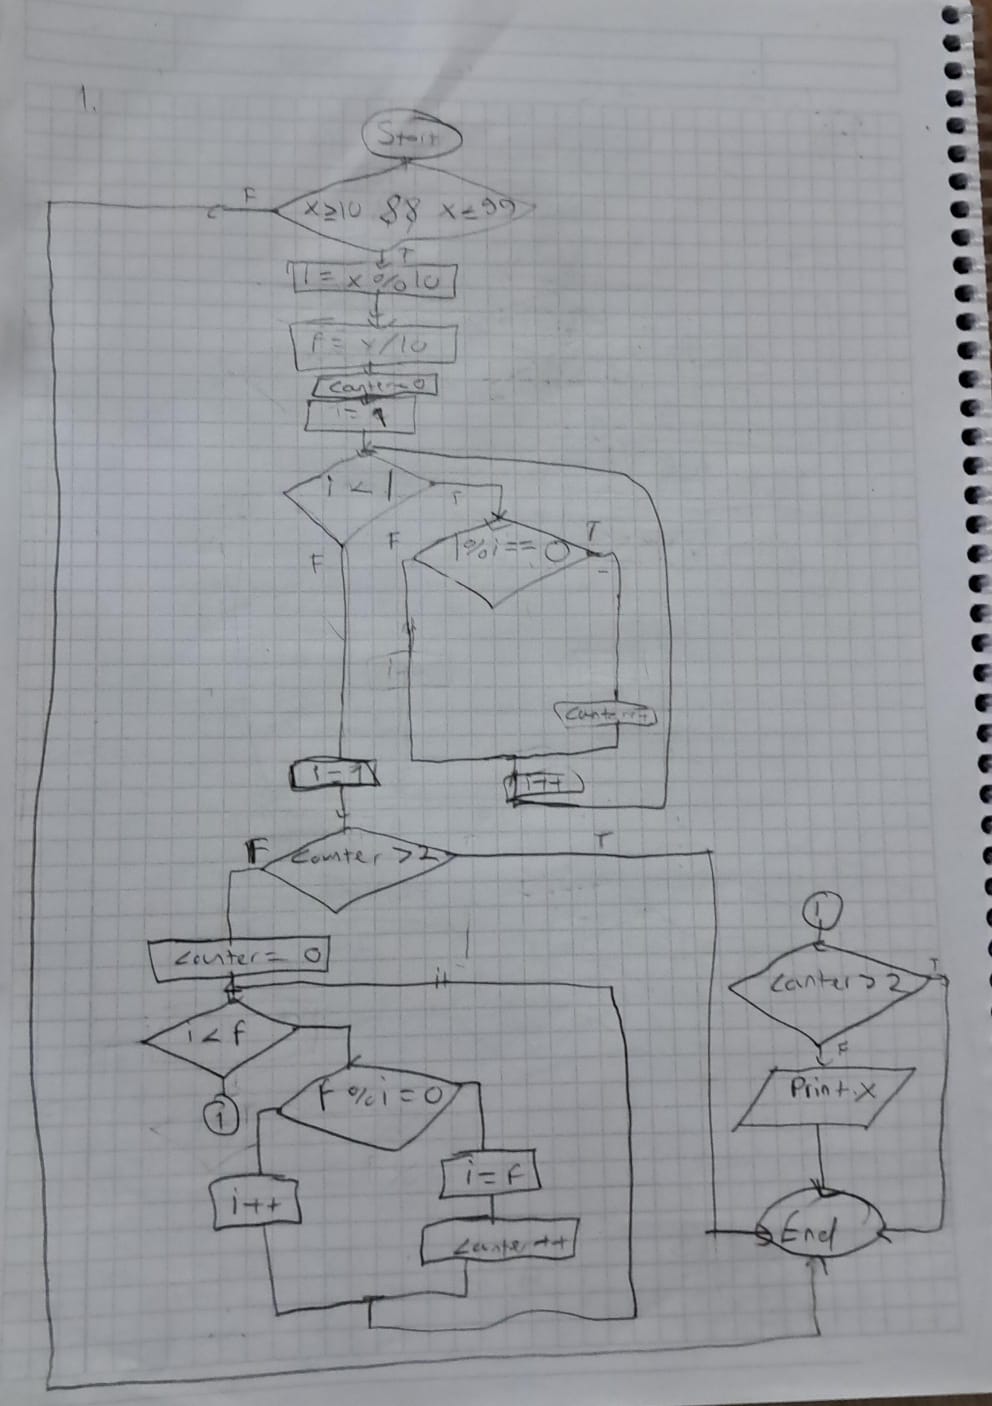 1.
Start
F
x≥10 && x≤99
T
l = x % 10
f = x/10
counter=0
i = 1
i < l
T
F
F
l%i== 0
T
counter++
i++
i=1
F
counter >2
T
counter= 0
i < f
1
F %i=0
i++
i=F
counter++
1
counter>2
T
F
Print x
End